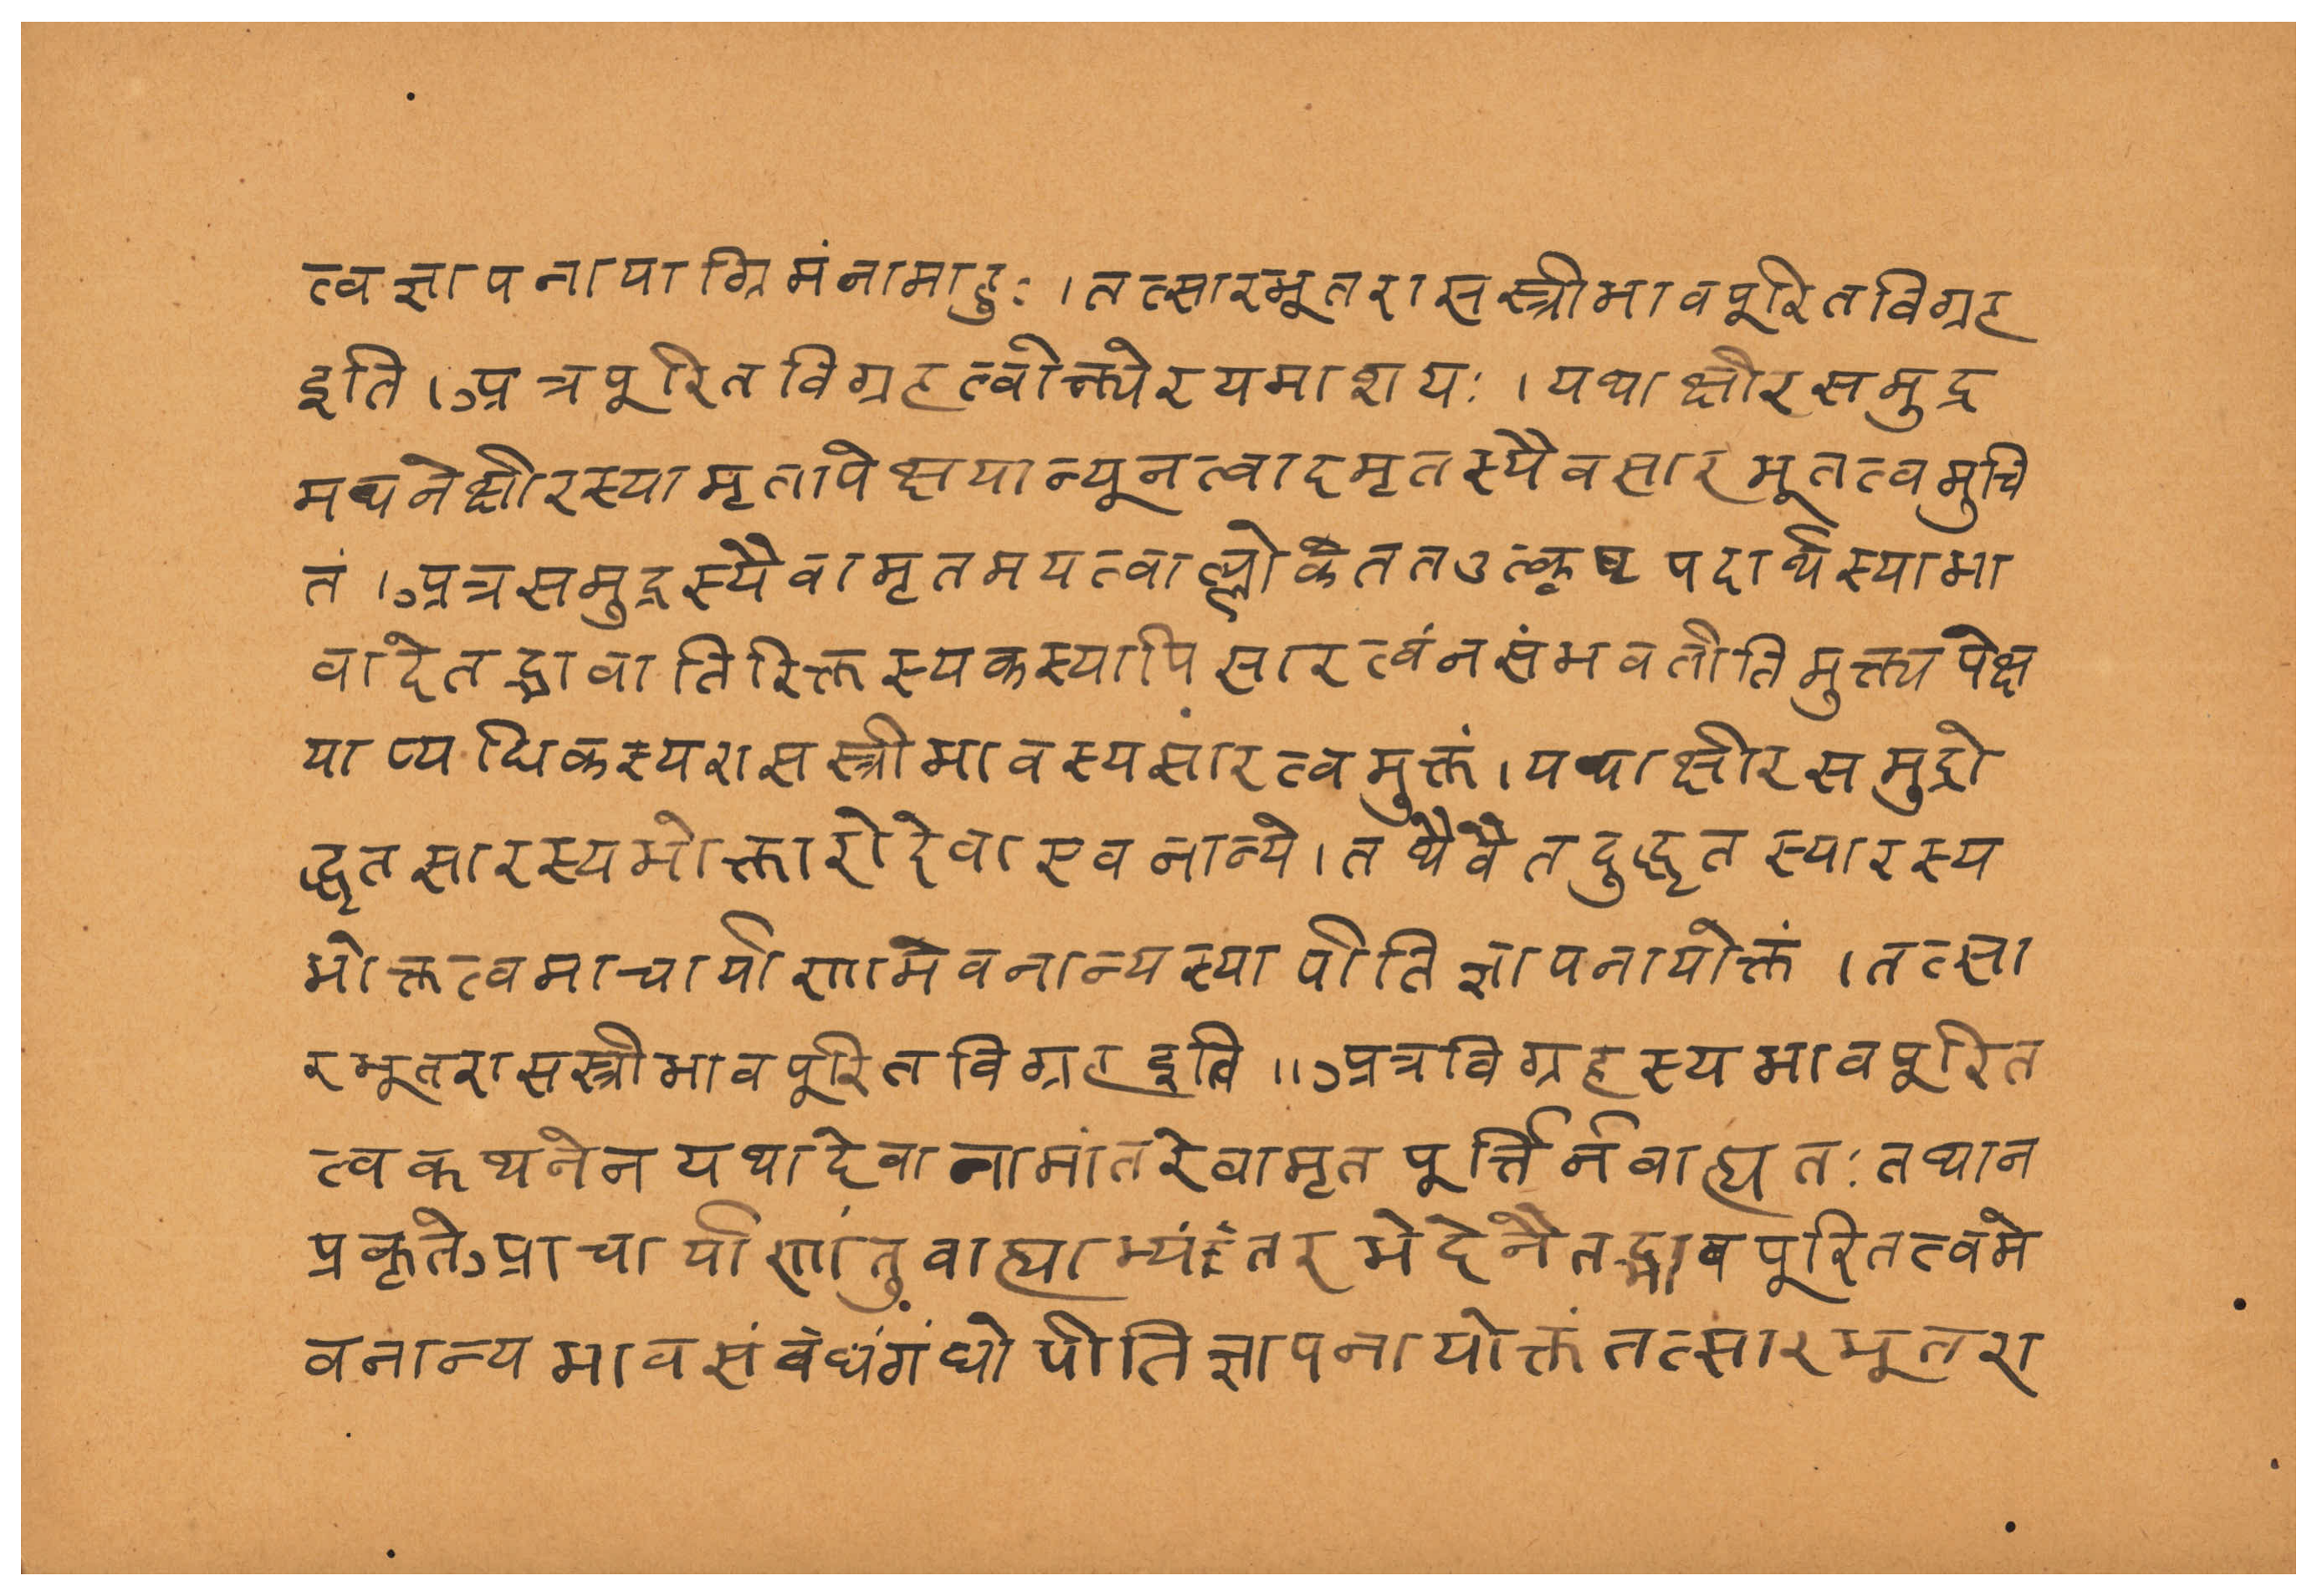 त्वज्ञापनायाग्रिमंनामाहुः।तत्सारभूतरासस्त्रीभावपूरितविग्रह
इति।अत्रपूरितविग्रहत्वोक्त्येरयमाशयः।यथाक्षीरसमुद्र
मथनेक्षीरस्यामृतापेक्षयान्यूनत्वादमृतस्यैवसारभूतत्वमुचि
तं।अत्रसमुद्रस्यैवामृतमयत्वाल्लोकेततउत्कृष्टपदार्थस्याभा
वादेतद्भावातिरिक्तस्यकस्यापिसारत्वंनसंभवतीतिमुक्त्यपेक्ष
याप्यधिकस्यरासस्त्रीभावस्यसारत्वमुक्तं।यथाक्षीरसमुद्रो
द्धृतसारस्यभोक्तारोदेवाएवनान्ये।तथैवैतदुद्धृतस्यारस्य
भोक्तत्वमाचार्याणामेवनान्यस्यापीतिज्ञापनायोक्तं।तत्सा
रभूतरासस्त्रीभावपूरितविग्रहइति॥अत्रविग्रहस्यभावपूरित
त्वकथनेनयथादेवानामांतरेवामृतपूर्त्तिर्नवाह्यतःतथान
प्रकृतेआचार्याणांतुवाह्याभ्यंतरभेदेनैतद्भावपूरितत्वमे
वनान्यभावसंवंधंगंधोपीतिज्ञापनायोक्तंतत्सारभूतरा